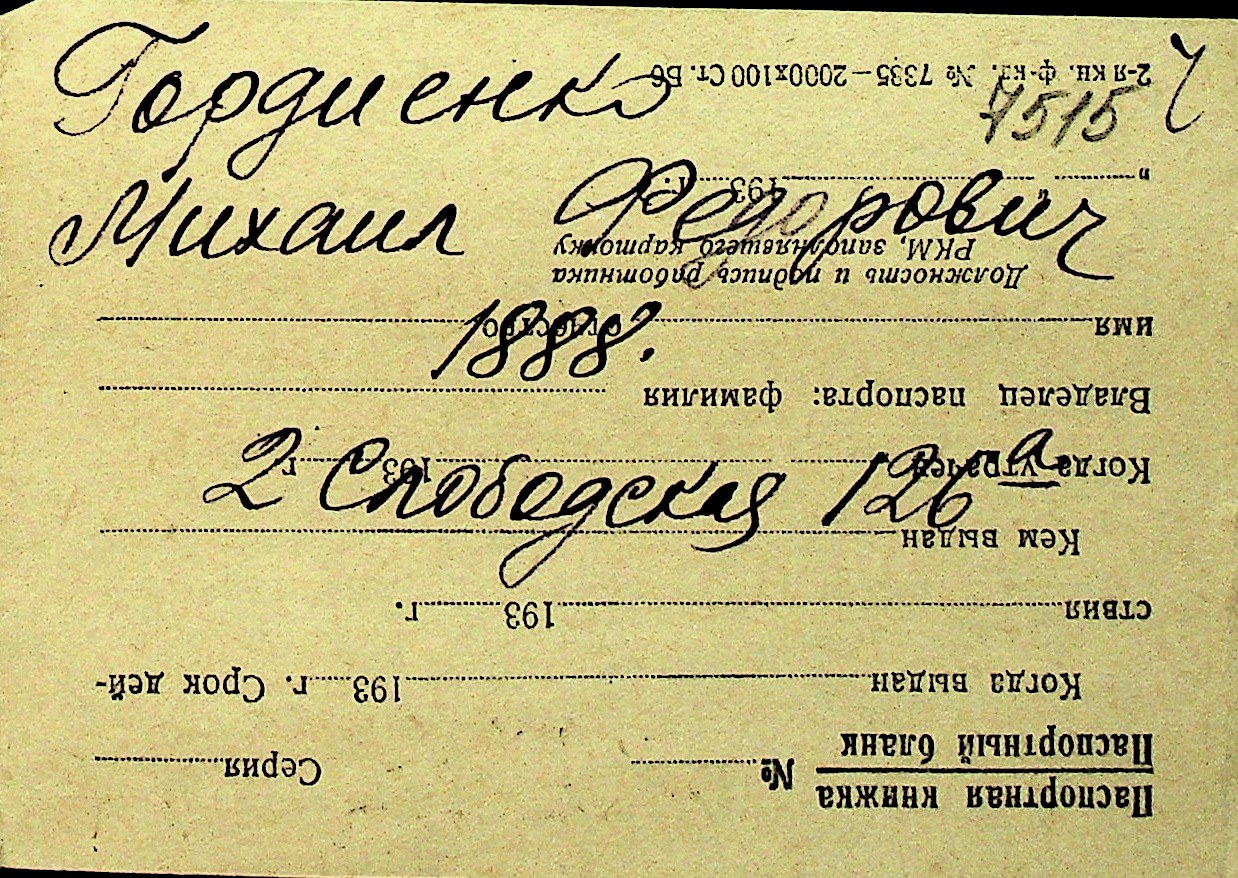 Гордиенко
Михаил Федорович
1888.
2 Слободская 126а
7515
Паспортная книжка
Паспортный бланк
№ Серия
Когда выдан 193 г. Срок дей-
ствия 193 г.
Кем выдан
Когда утрачен 193 г.
Владелец паспорта: фамилия
имя отчество
Должность и подпись работника
РКМ, заполнявшего картонку
" " 193 г.
2-я кн. ф-ка. № 7335—2000х100 Ст. Б6